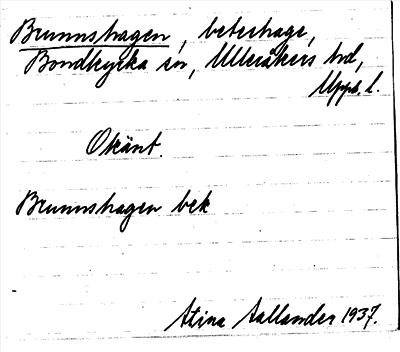 Brunnshagen, beteshage,
Bondkyrka sn, Ulleråkers hd,
Upps. l.
Okänt.
Brunnshagen bek
Stina Sallander 1937.